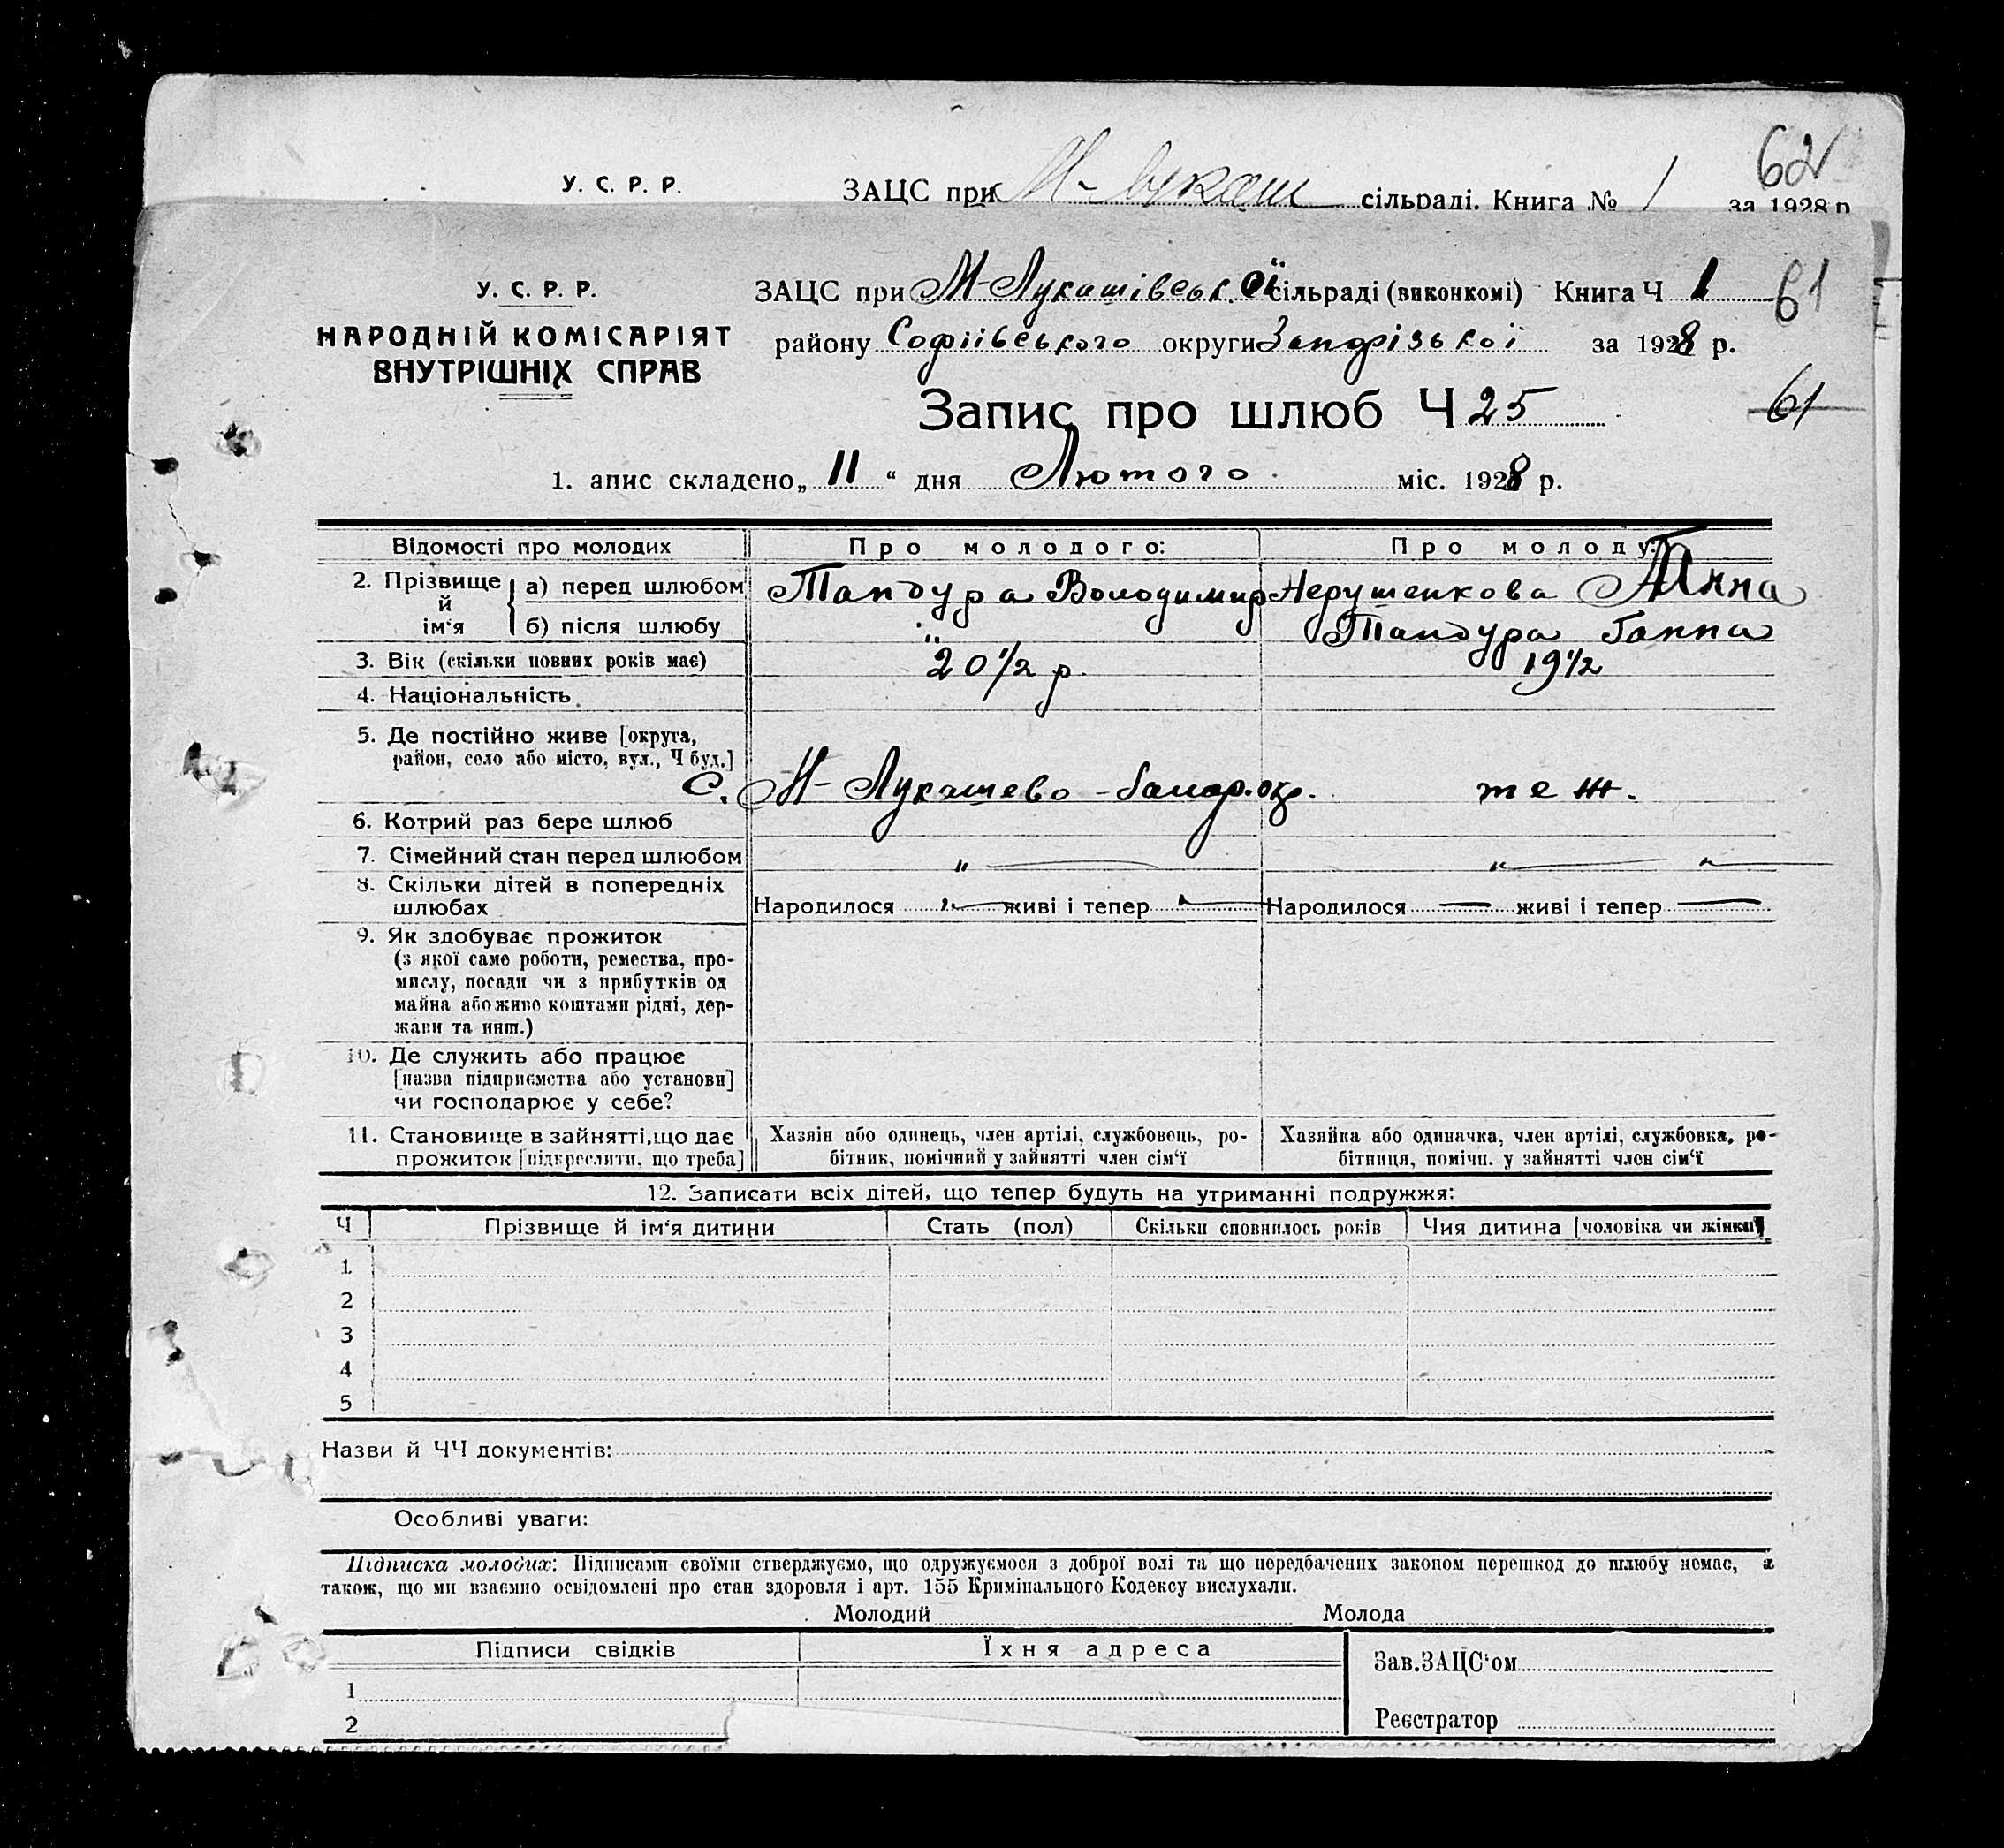 У. С. Р. Р. ЗАЦС при М- сільраді. Книга № 1 за 1928 р
62
У. С. Р. Р.
НАРОДНІЙ КОМІСАРІЯТ
ВНУТРІШНІХ СПРАВ
ЗАЦС при М-Лукашівськ.ої сільраді (виконкомі) Книга Ч 1
61
району Софіївського округи Запорізької за 1928 р.
Запис про шлюб Ч 25
61
1. апис складено „ 11 “ дня Лютого міс. 1928 р.
Відомості про молодих Про молодого: Про молоду:
2. Прізвище й ім‘я а) перед шлюбом Тандура Володимир Нерушенкова Ганна
б) після шлюбу " Тандура Ганна
3. Вік (скільки повних років має) 20 1/2 р. 19 1/2
4. Національність
5. Де постійно живе [округа,
район, село або місто, вул., Ч буд.]
С. М-Лукашево - Запор. окр. теж.
6. Котрий раз бере шлюб
7. Сімейний стан перед шлюбом " — " — " —
8. Скільки дітей в попередніх
шлюбах Народилося " — живі і тепер " — Народилося — живі і тепер —
9. Як здобуває прожиток
(з якої саме роботи, ремества, про-
мислу, посади чи з прибутків од
майна або живе коштами рідні, дер-
жави та инш.)
10. Де служить або працює
[назва підприємства або установи]
чи господарює у себе?
11. Становище в зайнятті, що дає
прожиток [підкреслити, що треба]
Хазяін або одинець, член артілі, службовець, ро-
бітник, помічний у зайнятті член сім‘ї
Хазяйка або одиначка, член артілі, службовка, ро-
бітниця, помічн. у зайнятті член сім‘ї
12. Записати всіх дітей, що тепер будуть на утриманні подружжя:
Ч Прізвище й ім‘я дитини Стать (пол) Скільки сповнилось років Чия дитина [чоловіка чи жінки]
1
2
3
4
5
Назви й ЧЧ документів:
Особливі уваги:
Підписка молодих: Підписами своїми стверджуємо, що одружуємося з доброї волі та що передбачених законом перешкод до шлюбу немає, а
також, що ми взаємно освідомлені про стан здоровля і арт. 155 Кримінального Кодексу вислухали.
Молодий Молода
Підписи свідків Їхня адреса
Зав.ЗАЦС‘ом
1
2
Реєстратор